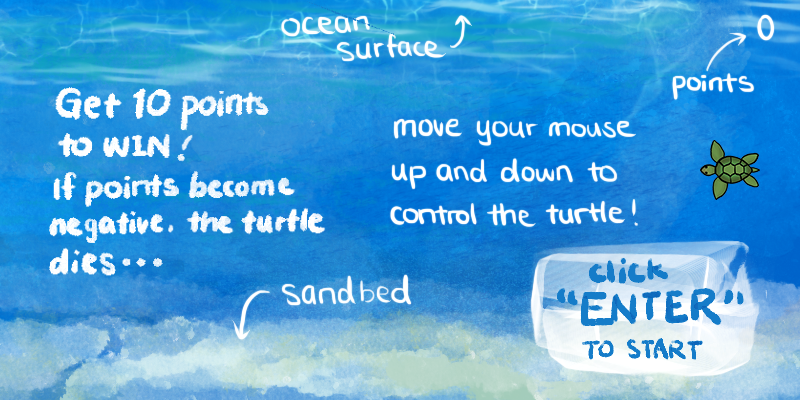 ocean
surface
0
points
Get 10 points
to WIN!
If points become
negative. the turtle
dies...
move your mouse
up and down to
control the turtle!
sandbed
click
"ENTER"
TO START